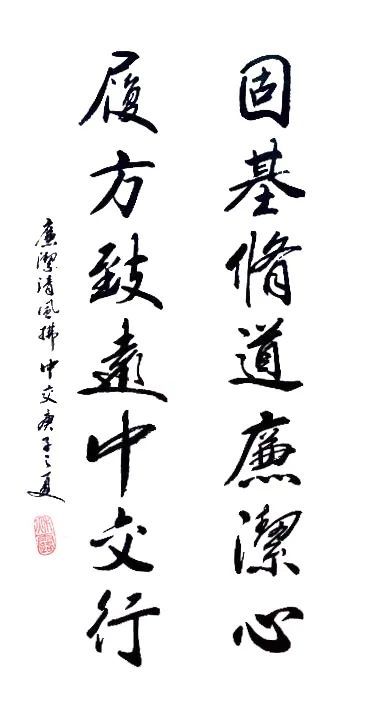 固基脩道廉潔心
履方致遠中交行
廉潔清風拂中交庚子之夏